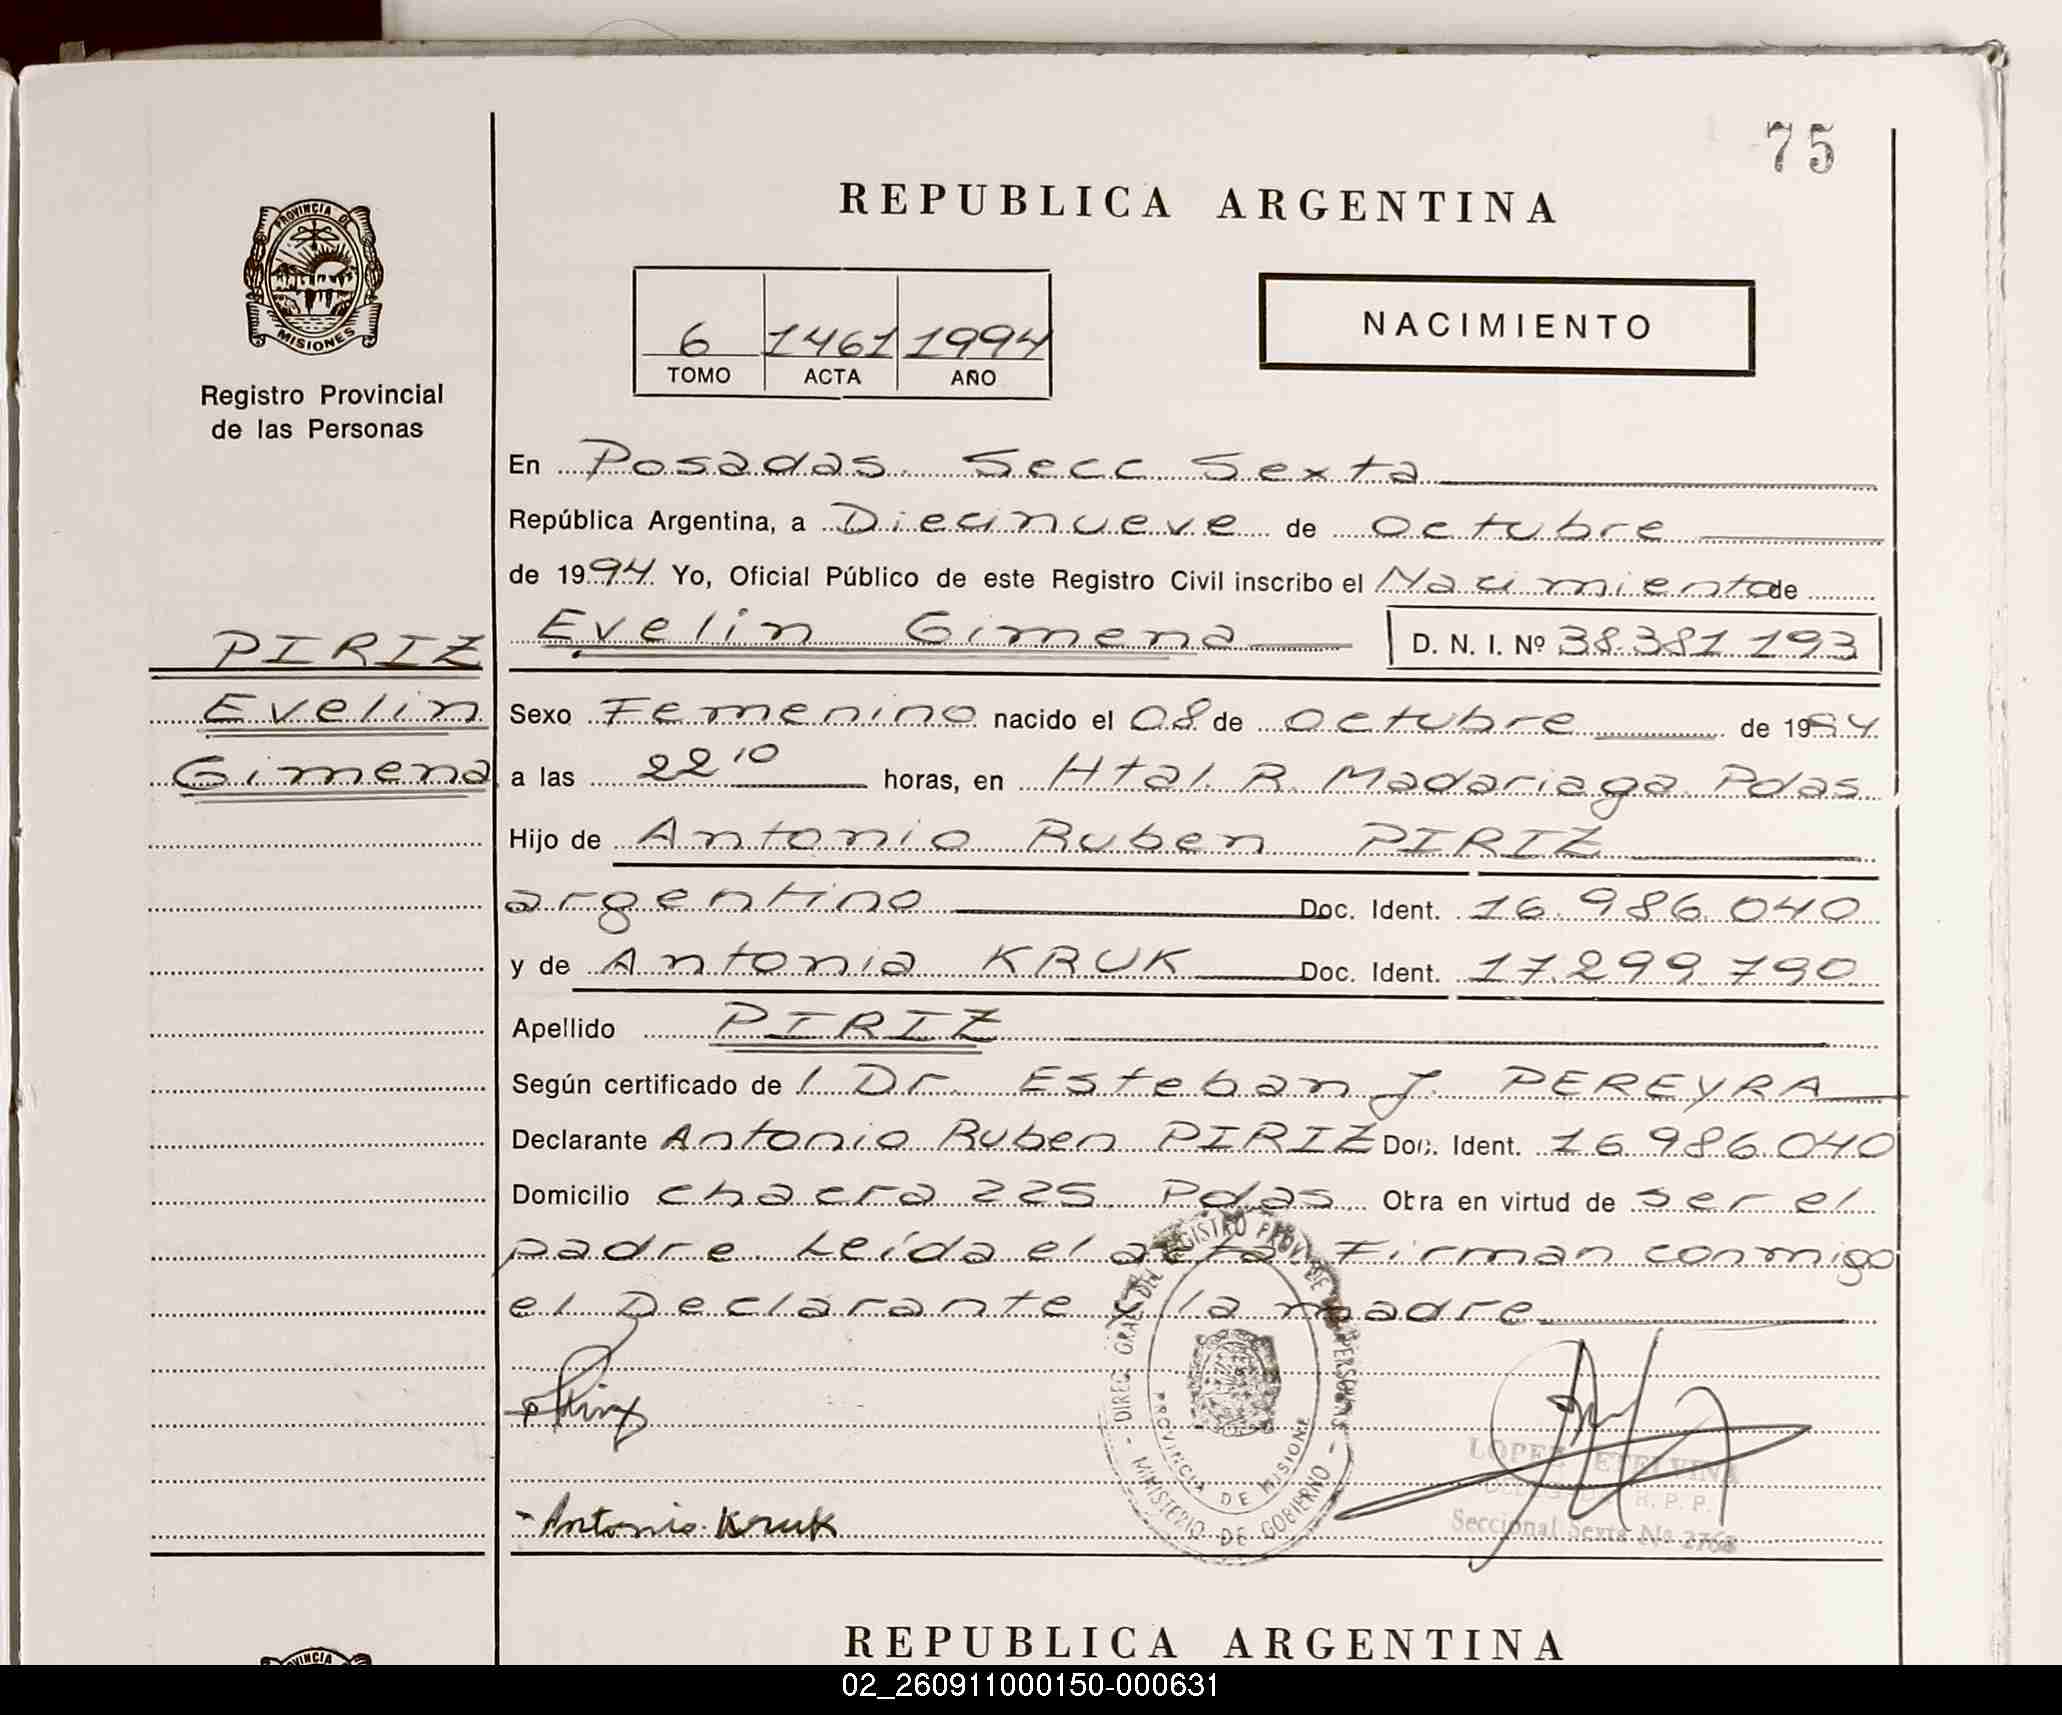 75
REPUBLICA ARGENTINA
PROVINCIA DE
MISIONES
Registro Provincial
de las Personas
6 1461 1994
TOMO ACTA AÑO
NACIMIENTO
En Posadas. Secc. Sexta
República Argentina, a Diecinueve de octubre
de 1994. Yo, Oficial Público de este Registro Civil inscribo el Nacimiento de
PIRIZ
Evelin Gimena D. N. I. Nº 38.381.193
Evelin
Sexo Femenino nacido el 08 de octubre de 1994
Gimena
a las 22 10 horas, en Htal. R. Madariaga. Pdas
Hijo de Antonio Ruben PIRIZ
argentino Doc. Ident. 16.986.040
y de Antonia KRUK Doc. Ident. 17.299.790
Apellido PIRIZ
Según certificado de / Dr. Esteban J. PEREYRA
Declarante Antonio Ruben PIRIZ Doc. Ident. 16.986.040
Domicilio chacra 225. Pdas. Obra en virtud de ser el
padre. Leída el acta Firman conmigo
el Declarante y la madre
DIREC. GRAL. DEL REGISTRO PROV. DE LAS PERSONAS
PROVINCIA DE MISIONES
- MINISTERIO DE GOBIERNO -
LOPEZ ETELVINA
R. P. P.
Seccional Sexta Nº 2768
Antonia Kruk
REPUBLICA ARGENTINA
02_260911000150-000631